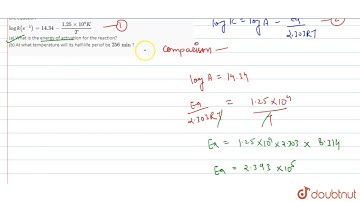 log k(s⁻¹) = 14.34 − 1.25 × 10⁴K / T — ①
(a) What is the energy of activation for the reaction?
(b) At what temperature will its half-life period be 256 min ?
log K = log A − Ea / 2.303RT — ②
Comparison —
log A = 14.34
Ea / 2.303RT = 1.25 × 10⁴ / T
Ea = 1.25 × 10⁴ × 2.303 × 8.314
Ea = 2.393 × 10⁵
doubtnut